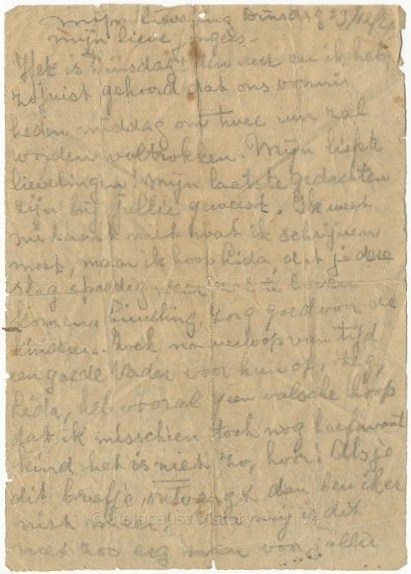 Mijn lieveling Dinsdag 29/12/
Mijn lieve jongens.
Het is Dinsdag! den weet en ik heb
zojuist gehoord dat ons vonnis
heden middag om twee uur zal
worden voltrokken. Mijn liefste
lievelingen! Mijn laatste gedachten
zijn bij jullie geweest. Ik weet
nu haast niet wat ik schrijven
moet, maar ik hoop Lida, dat je deze
slag spoedig te boven
komen. Lieveling, zorg goed voor de
kinderen. Zoek na verloop van tijd
een goede Vader voor hun op, zeg,
Lida, heb vooral geen valsche hoop
dat ik misschien toch nog leef, want
kind het is niet zo, hoor! Als je
dit briefje, ontvangt dan ben ik er
niet meer. mij is dit
niet zoo erg maar voor jullie